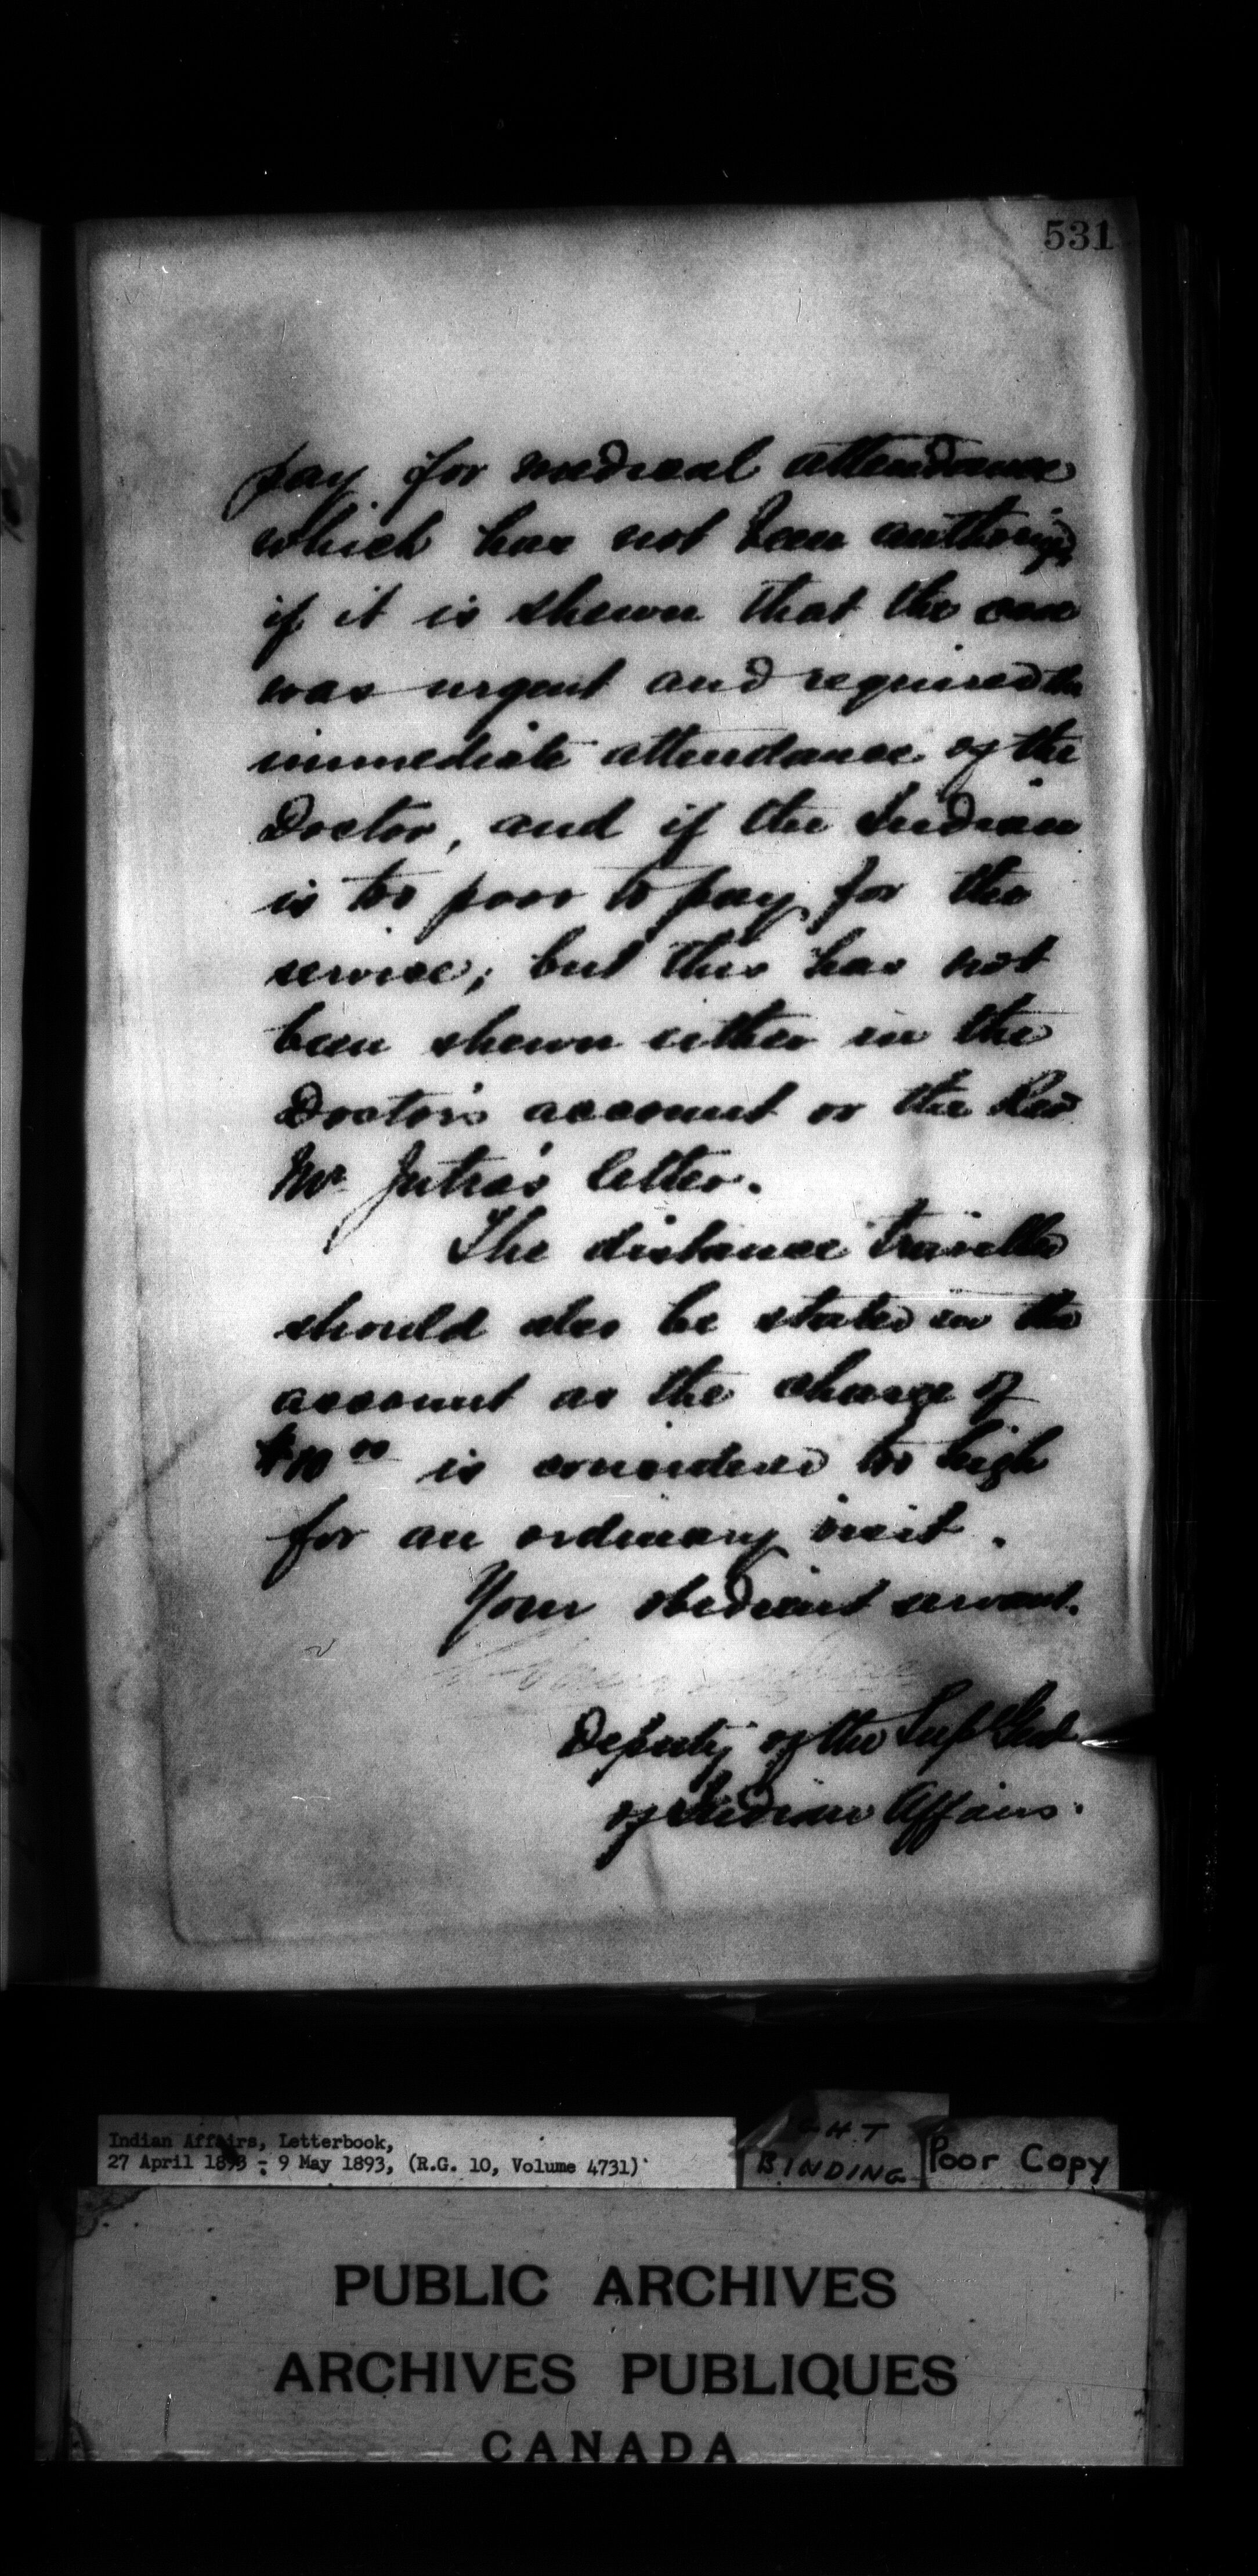 531
pay for medical attendance
which has not been authorized
if it is shewn that the case
was urgent and required the
immediate attendance of the
Doctor, and if the Indian
is too poor to pay for the
service; but this has not
been shewn either in the
Doctor's account or the Rev
Mr Jutras's letter.
The distance travelled
should also be stated in the
account as the charge of
$10.00 is considered too high
for an ordinary visit.
Your obedient servant.
Deputy of the Supt Genl
of Indian Affairs.
Indian Affairs, Letterbook,
27 April 1893 - 9 May 1893, (R.G. 10, Volume 4731)
BINDING
Poor Copy
PUBLIC ARCHIVES
ARCHIVES PUBLIQUES
CANADA